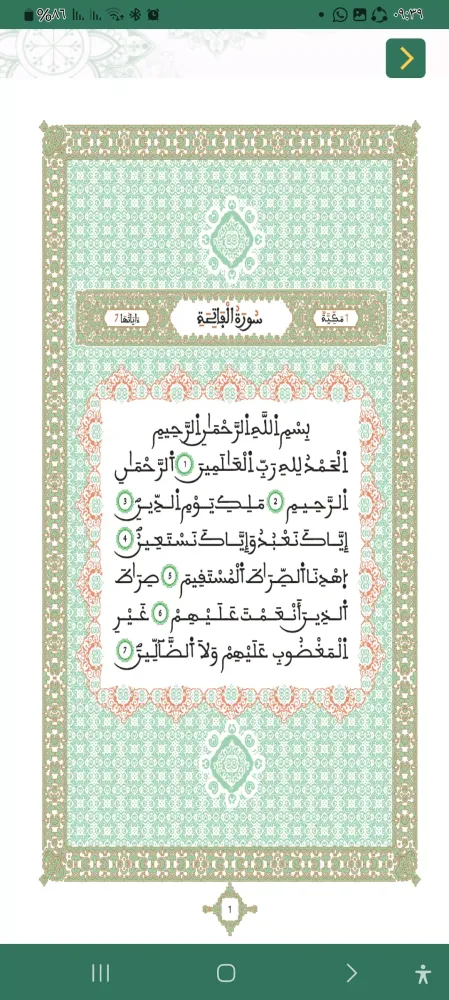 %٨٦ ٠٩:٣٩
1 مَكِّيَّةٌ سُورَةُ الْفَاتِحَةِ ءَايَاتُهَا 7
بِسْمِ اِ۬للَّهِ اِ۬لرَّحْمَٰنِ اِ۬لرَّحِيمِ
اَ۬لْحَمْدُ لِلهِ رَبِّ اِ۬لْعَٰلَمِينَ 1 اَ۬لرَّحْمَٰنِ
اِ۬لرَّحِيمِ 2 مَلِكِ يَوْمِ اِ۬لدِّينِ 3
إِيَّاكَ نَعْبُدُ وَإِيَّاكَ نَسْتَعِينُ 4
اُ۪هْدِنَا اَ۬لصِّرَٰطَ اَ۬لْمُسْتَقِيمَ 5 صِرَٰطَ
اَ۬لذِينَ أَنْعَمْتَ عَلَيْهِمْ 6 غَيْرِ
اِ۬لْمَغْضُوبِ عَلَيْهِمْ وَلَا اَ۬لضَّآلِّينَ 7
1